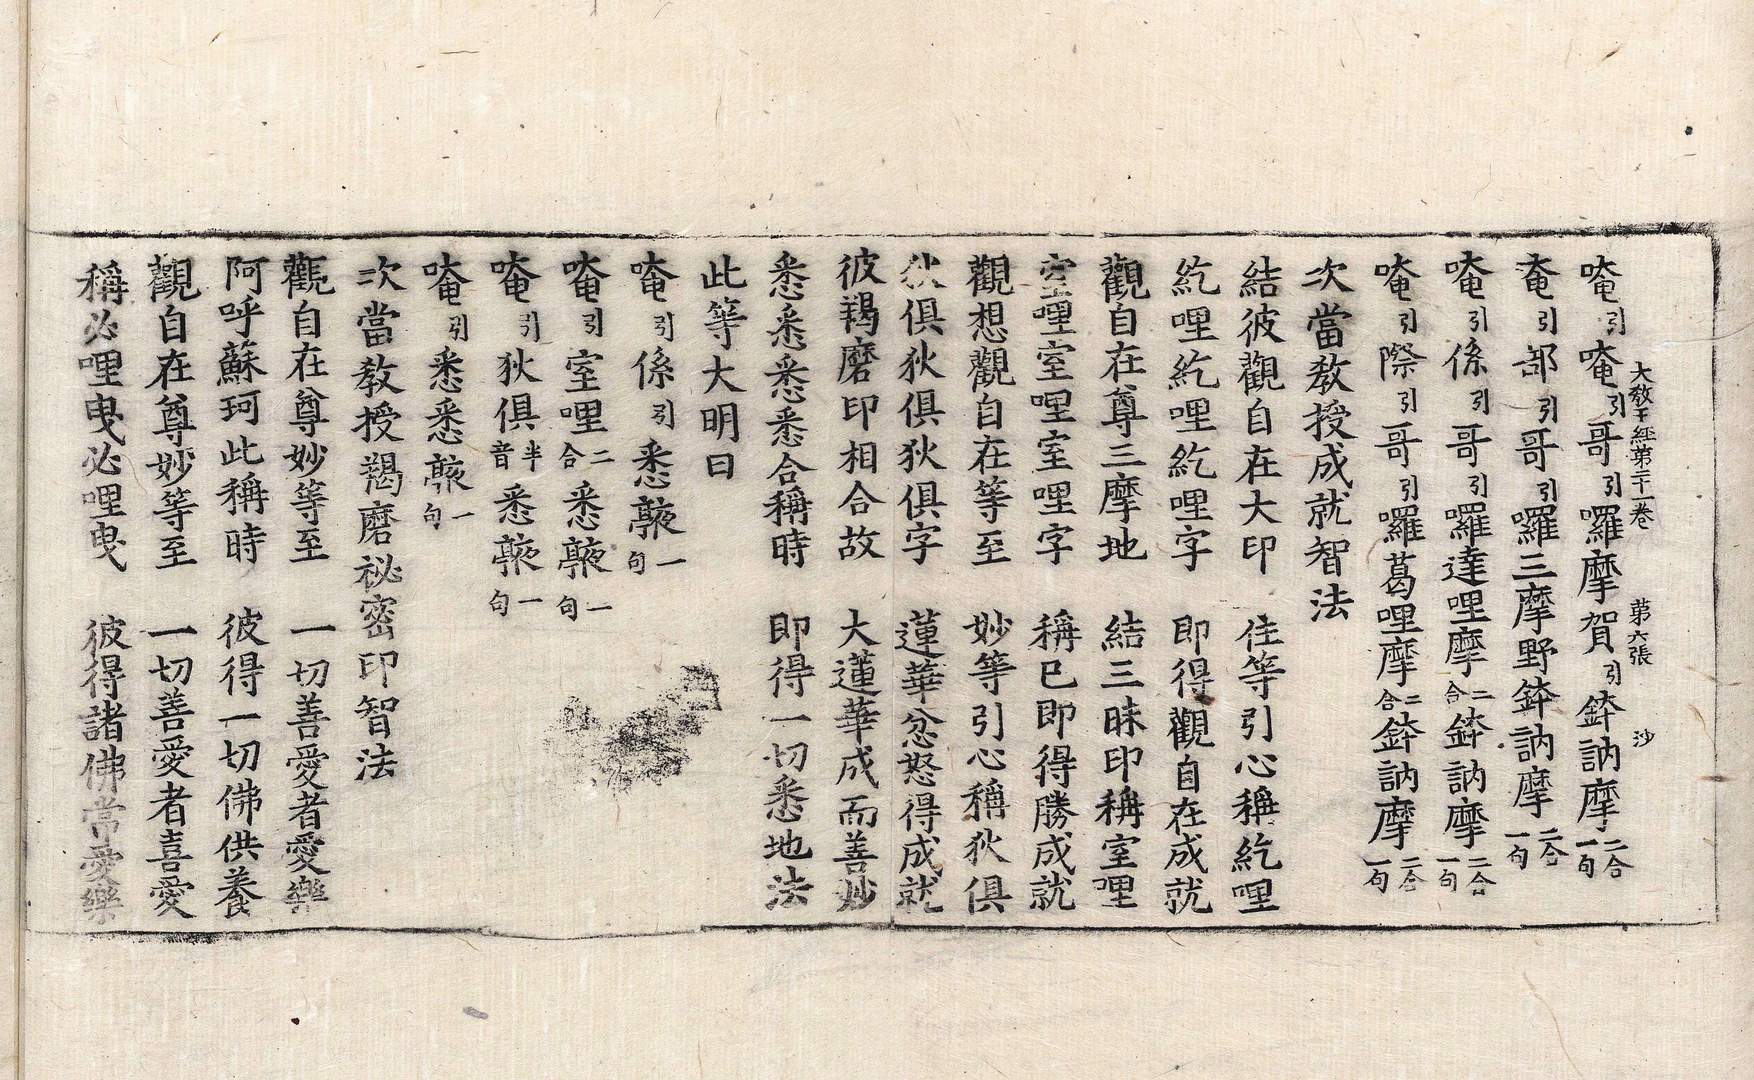 大教王經第二十一卷　第六張　沙
唵引唵引哥引囉摩賀引鉢訥摩二合一句
奄引部引哥引囉三摩野鉢訥摩二合一句
唵引係引哥引囉達哩摩二合鉢訥摩二合一句
唵引際引哥引囉葛哩摩二合鉢訥摩二合一句
次當教授成就智法
結彼觀自在大印　住等引心稱紇哩
紇哩紇哩紇哩字　即得觀自在成就
觀自在尊三摩地　結三昧印稱室哩
室哩室哩室哩字　稱已即得勝成就
觀想觀自在等至　妙等引心稱狄俱
狄俱狄俱狄俱字　蓮華忿怒得成就
彼羯磨印相合故　大蓮華成而善妙
悉悉悉悉合稱時　即得一切悉地法
此等大明曰
唵引係引悉𠼝一句
唵引室哩二合悉𠼝一句
唵引狄俱半音悉𠼝一句
唵引悉悉𠼝一句
次當教授羯磨祕密印智法
觀自在尊妙等至　一切善愛者愛樂
阿呼蘇珂此稱時　彼得一切佛供養
觀自在尊妙等至　一切善愛者喜愛
稱必哩曳必哩曳　彼得諸佛常愛樂